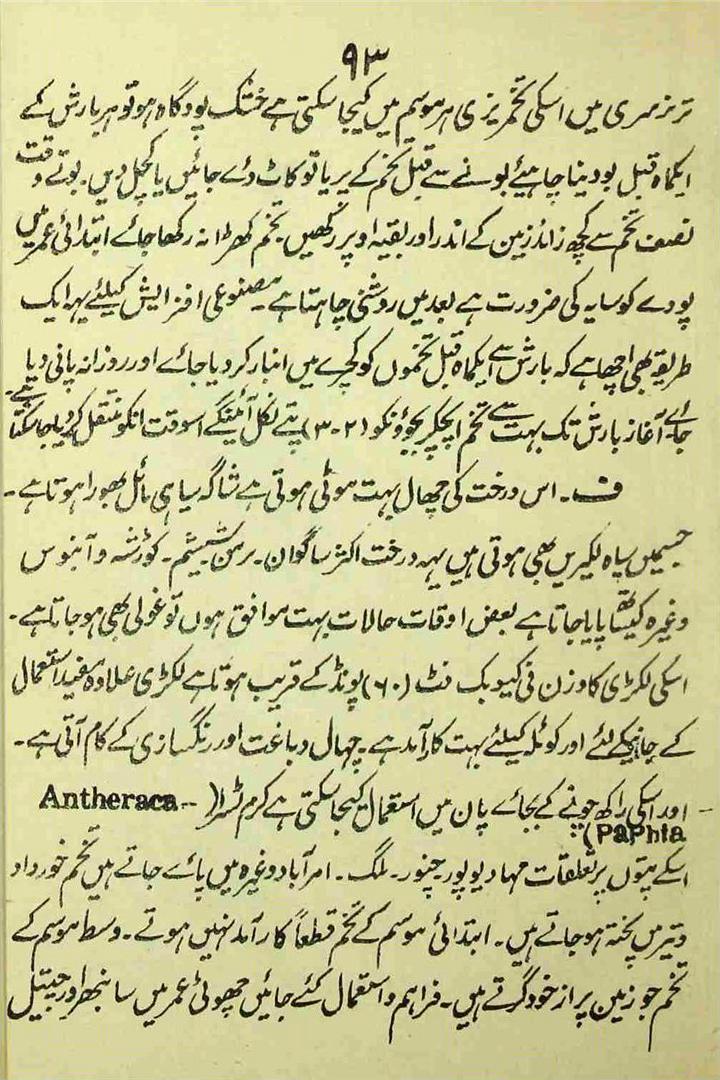 ۹۳
تر نرسری میں اسکی تخمریزی ہر موسم میں کیجا سکتی ہے خشک پودگاہ ہو تو ہر بارش کے
ایکماہ قبل بو دینا چاہئیے بونے سے قبل تخم کے پر یا تو کاٹ دئے جائیں یا کچل دیں۔ بوتے وقت
نصف تخم سے کچھ زائد زمین کے اندر اور بقیہ اوپر رکھیں۔ تخم کھڑا نہ رکھا جائے ابتدائی عمر میں
پودے کو سایہ کی ضرورت ہے بعد میں روشنی چاہتا ہے۔ مصنوعی افزایش کیلئے یہہ ایک
طریقہ بھی اچھا ہے کہ بارش سے ایکماہ قبل تخموں کو کچرے میں انبار کر دیا جائے اور روزانہ پانی دیا
جائے آغاز بارش تک بہت سے تخم اپجکر (۲-۳) پتے نکل آئینگے اسوقت انکو منتقل کر دیا جا سکتا ہے۔
ف۔ اس درخت کی چھال بہت موٹی ہوتی ہے شاگہ سیاہی مائل بھورا ہوتا ہے۔
جسمیں سیاہ لکیریں بھی ہوتی ہیں یہہ درخت اکثر ساگوان۔ برسن۔ شیشم۔ کوڑشہ و آبنوس
وغیرہ کیساتھ پایا جاتا ہے بعض اوقات حالات بہت موافق ہوں تو غولی بھی ہو جاتا ہے۔
اسکی لکڑی کا وزن فی کیوبک فٹ (۶۰) پونڈ کے قریب ہوتا ہے لکڑی علاوہ مفید استعمال
کے جانیکے لئے اور کوئلہ کیلئے بہت کارآمد ہے۔ چہال دباغت اور رنگسازی کے کام آتی ہے۔
اور اسکی راکھ چونے کے بجائے پان میں استعمال کیجا سکتی ہے کرم ٹسرا (Antheraca--
PaPhia)
اسکے پتوں پر تعلقات مہادیوپور، چنور۔ ملگ۔ امرآباد وغیرہ میں پائے جاتے ہیں تخم خورداد
و تیر میں پختہ ہو جاتے ہیں۔ ابتدائی موسم کے تخم قطعاً کارآمد نہیں ہوتے۔ وسط موسم کے
تخم جو زمین پر از خود گرتے ہیں۔ فراہم و استعمال کئے جائیں چھوٹی عمر میں سانبھر اور چیتل